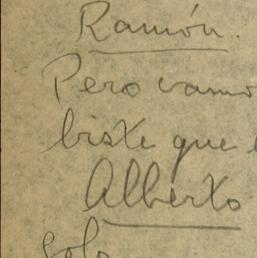 Ramón.
Pero vamo
biste que
Alberto